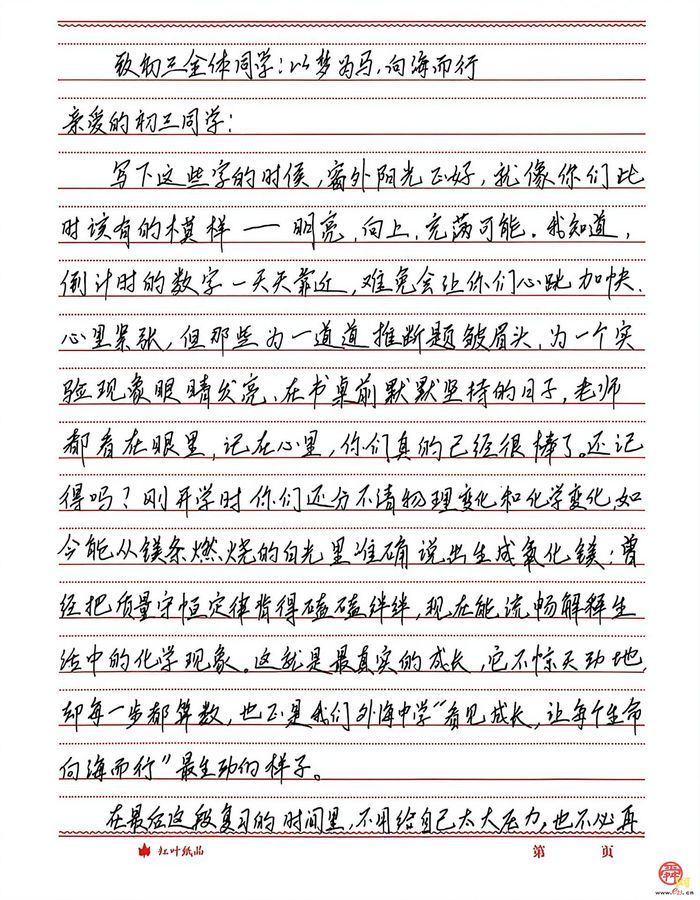 致初三全体同学：以梦为马，向海而行
亲爱的初三同学：
写下这些字的时候，窗外阳光正好，就像你们此
时该有的模样——明亮、向上、充满可能。我知道，
倒计时的数字一天天靠近，难免会让你们心跳加快、
心里紧张，但那些为一道道推断题皱眉头、为一个实
验现象眼睛发亮、在书桌前默默坚持的日子，老师
都看在眼里，记在心里，你们真的已经很棒了。还记
得吗？刚开学时你们还分不清物理变化和化学变化，如
今能从镁条燃烧的白光里准确说出生成氧化镁；曾
经把质量守恒定律背得磕磕绊绊，现在能流畅解释生
活中的化学现象。这就是最真实的成长，它不惊天动地，
却每一步都算数，也正是我们外海中学“看见成长，让每个生命
向海而行”最生动的样子。
在最后这段复习的时间里，不用给自己太大压力，也不必再
红叶纸品 第 页
舜网
www.e23.cn